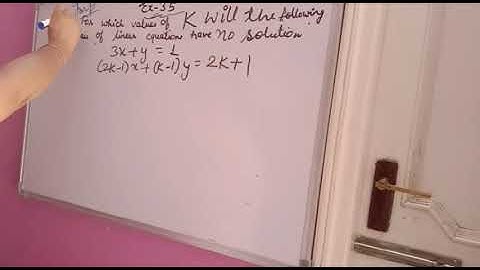 Ex-3.5
For which values of K will the following
of linear equation have no solution
3x+y = 1
(2k-1)x+(k-1)y = 2k+1